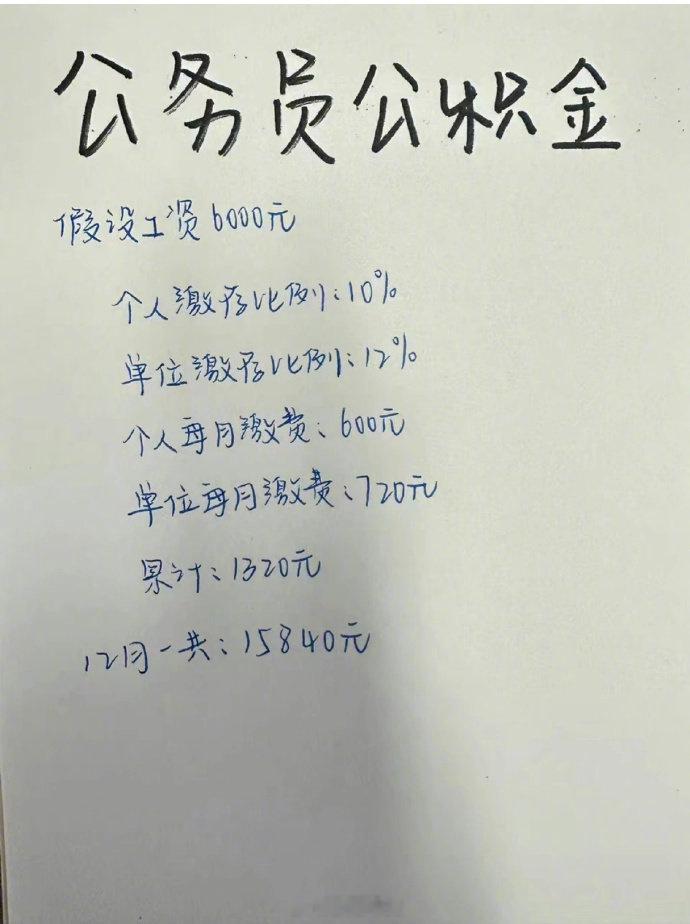 公务员公积金
假设工资6000元
个人缴存比例：10%
单位缴存比例：12%
个人每月缴费：600元
单位每月缴费：720元
累计：1320元
12月一共：15840元